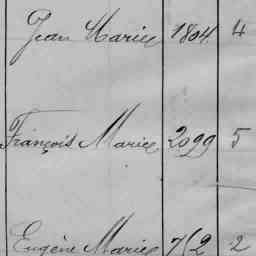 Jean Marie 1804 4
François Marie 2099 5
Eugène Marie 762 2